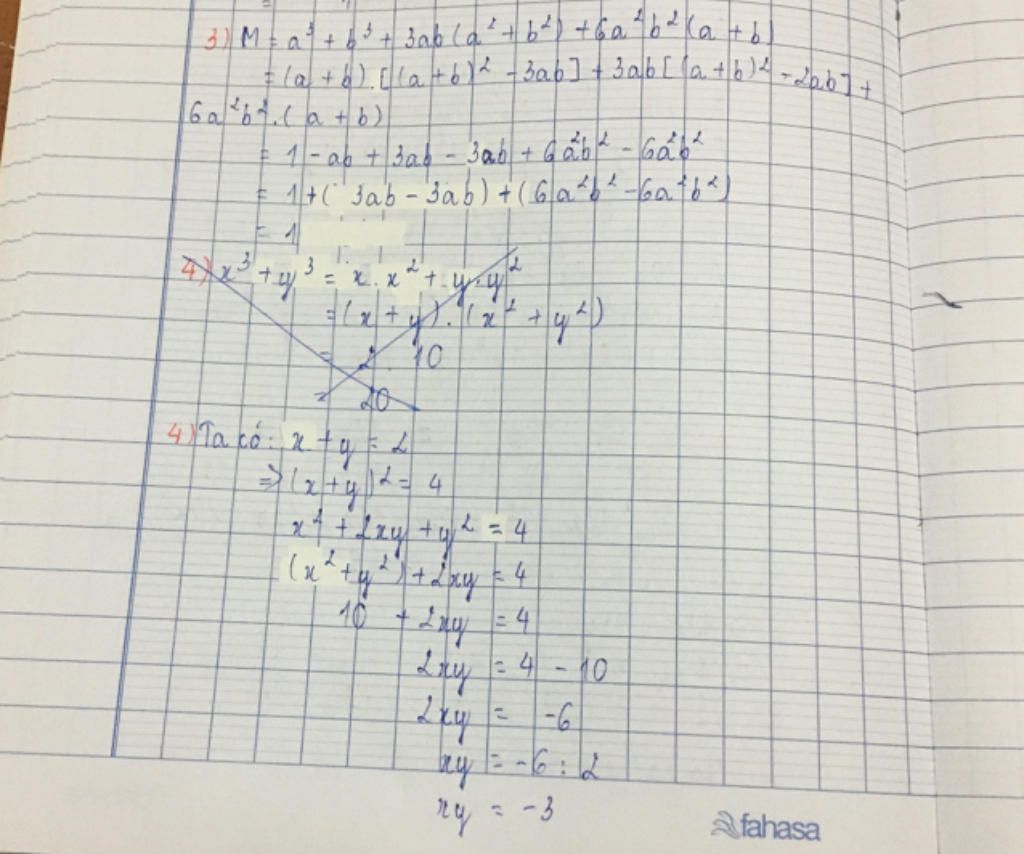 3) M = a³ + b³ + 3ab (a² + b²) + 6a²b² (a + b)
= (a + b) . [(a + b)² - 3ab] + 3ab [(a + b)² - 2ab] +
6a²b² . (a + b)
= 1 - ab + 3ab - 3ab + 6a²b² - 6a²b²
= 1 + ( 3ab - 3ab) + (6a²b² - 6a²b²)
= 1
4) x³ + y³ = x . x² + y . y²
= (x + y) . (x² + y²)
= 2 . 10
= 20
4) Ta có: x + y = 2
=> (x + y)² = 4
x² + 2xy + y² = 4
(x² + y²) + 2xy = 4
10 + 2xy = 4
2xy = 4 - 10
2xy = -6
xy = -6 : 2
xy = -3
fahasa